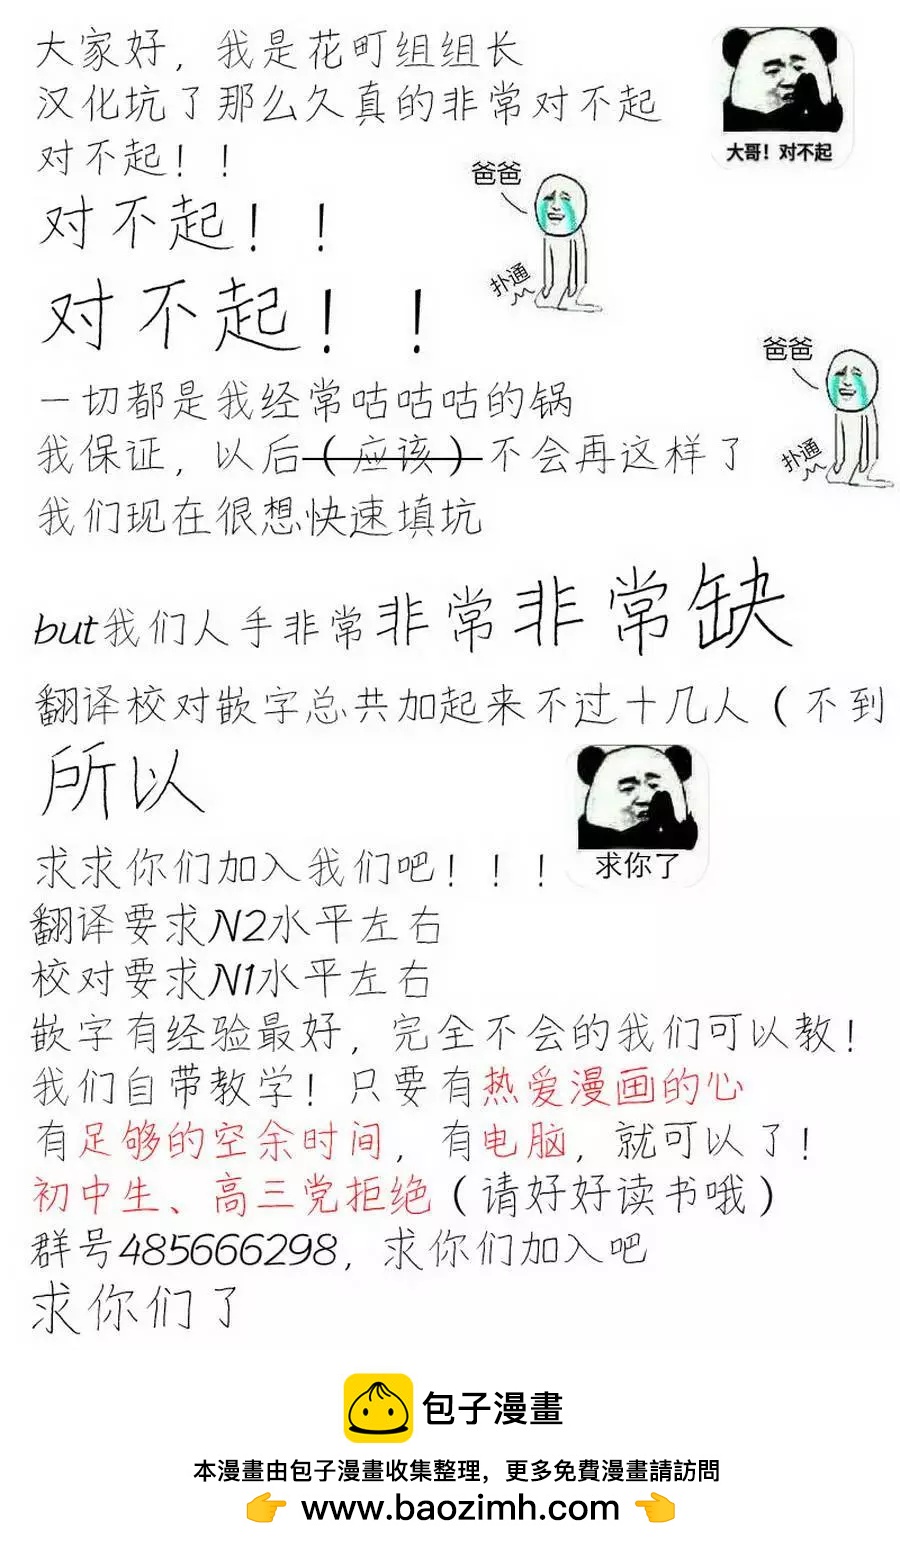 大家好，我是花町组组长
汉化坑了那么久真的非常对不起
大哥！对不起
对不起！！
爸爸
对不起！！
扑通
对不起！！
爸爸
一切都是我经常咕咕咕的锅
我保证，以后（应该）不会再这样了
扑通
我们现在很想快速填坑
but我们人手非常非常非常缺
翻译校对嵌字总共加起来不过十几人（不到
所以
求你了
求求你们加入我们吧！！！
翻译要求N2水平左右
校对要求N1水平左右
嵌字有经验最好，完全不会的我们可以教！
我们自带教学！只要有热爱漫画的心
有足够的空余时间，有电脑，就可以了！
初中生、高三党拒绝（请好好读书哦）
群号485666298，求你们加入吧
求你们了
包子漫畫
本漫畫由包子漫畫收集整理，更多免費漫畫請訪問
👉 www.baozimh.com 👈